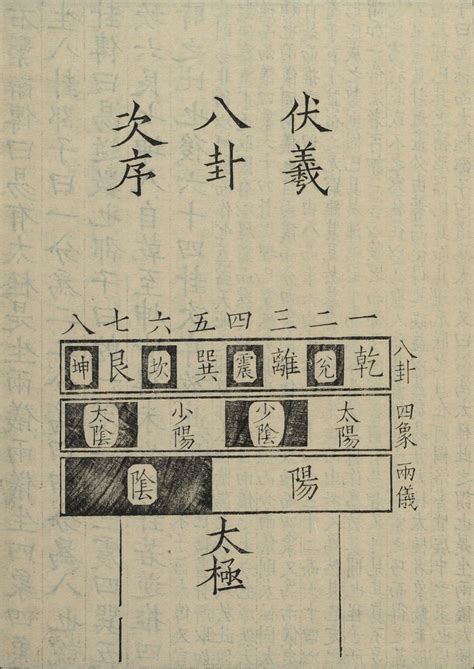 伏羲
八卦
次序
一二三四五六七八
八卦
乾兌離震巽坎艮坤
四象
太陽 少陰 少陽 太陰
兩儀
陽 陰
太極